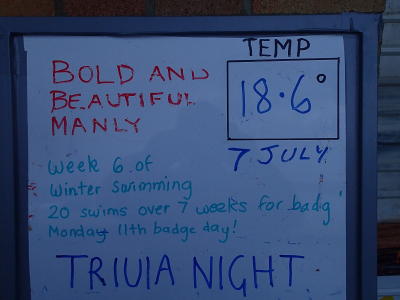 TEMP
BOLD AND
BEAUTIFUL
MANLY
18.6°
7 JULY
Week 6 of
Winter Swimming
20 swims over 7 weeks for badg
Monday 11th badge day!
TRIVIA NIGHT